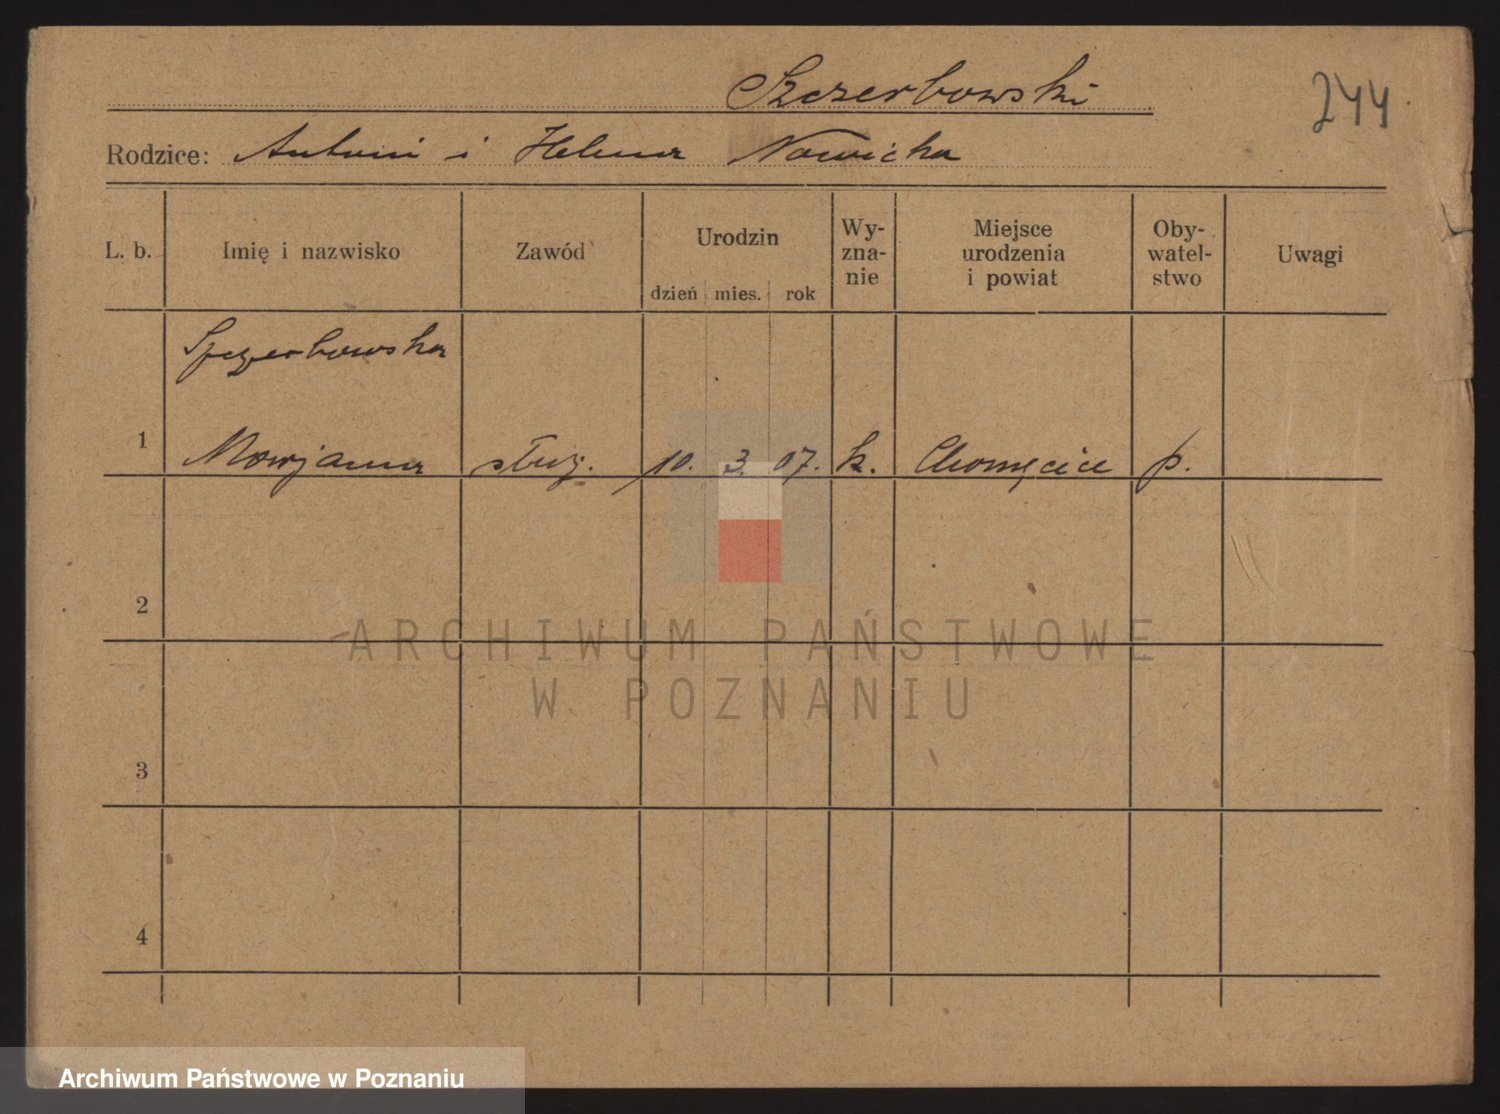 Szczerbowski
244
Rodzice: Antoni i Helena Nowicka
L. b. Imię i nazwisko Zawód Urodzin dzień mies. rok Wy-znanie Miejsce urodzenia i powiat Oby-watel-stwo Uwagi
Szczerbowska
1 Marjanna służ. 10. 3. 07. k. Chomęcice p.
2
3
4
ARCHIWUM PAŃSTWOWE
W POZNANIU
Archiwum Państwowe w Poznaniu